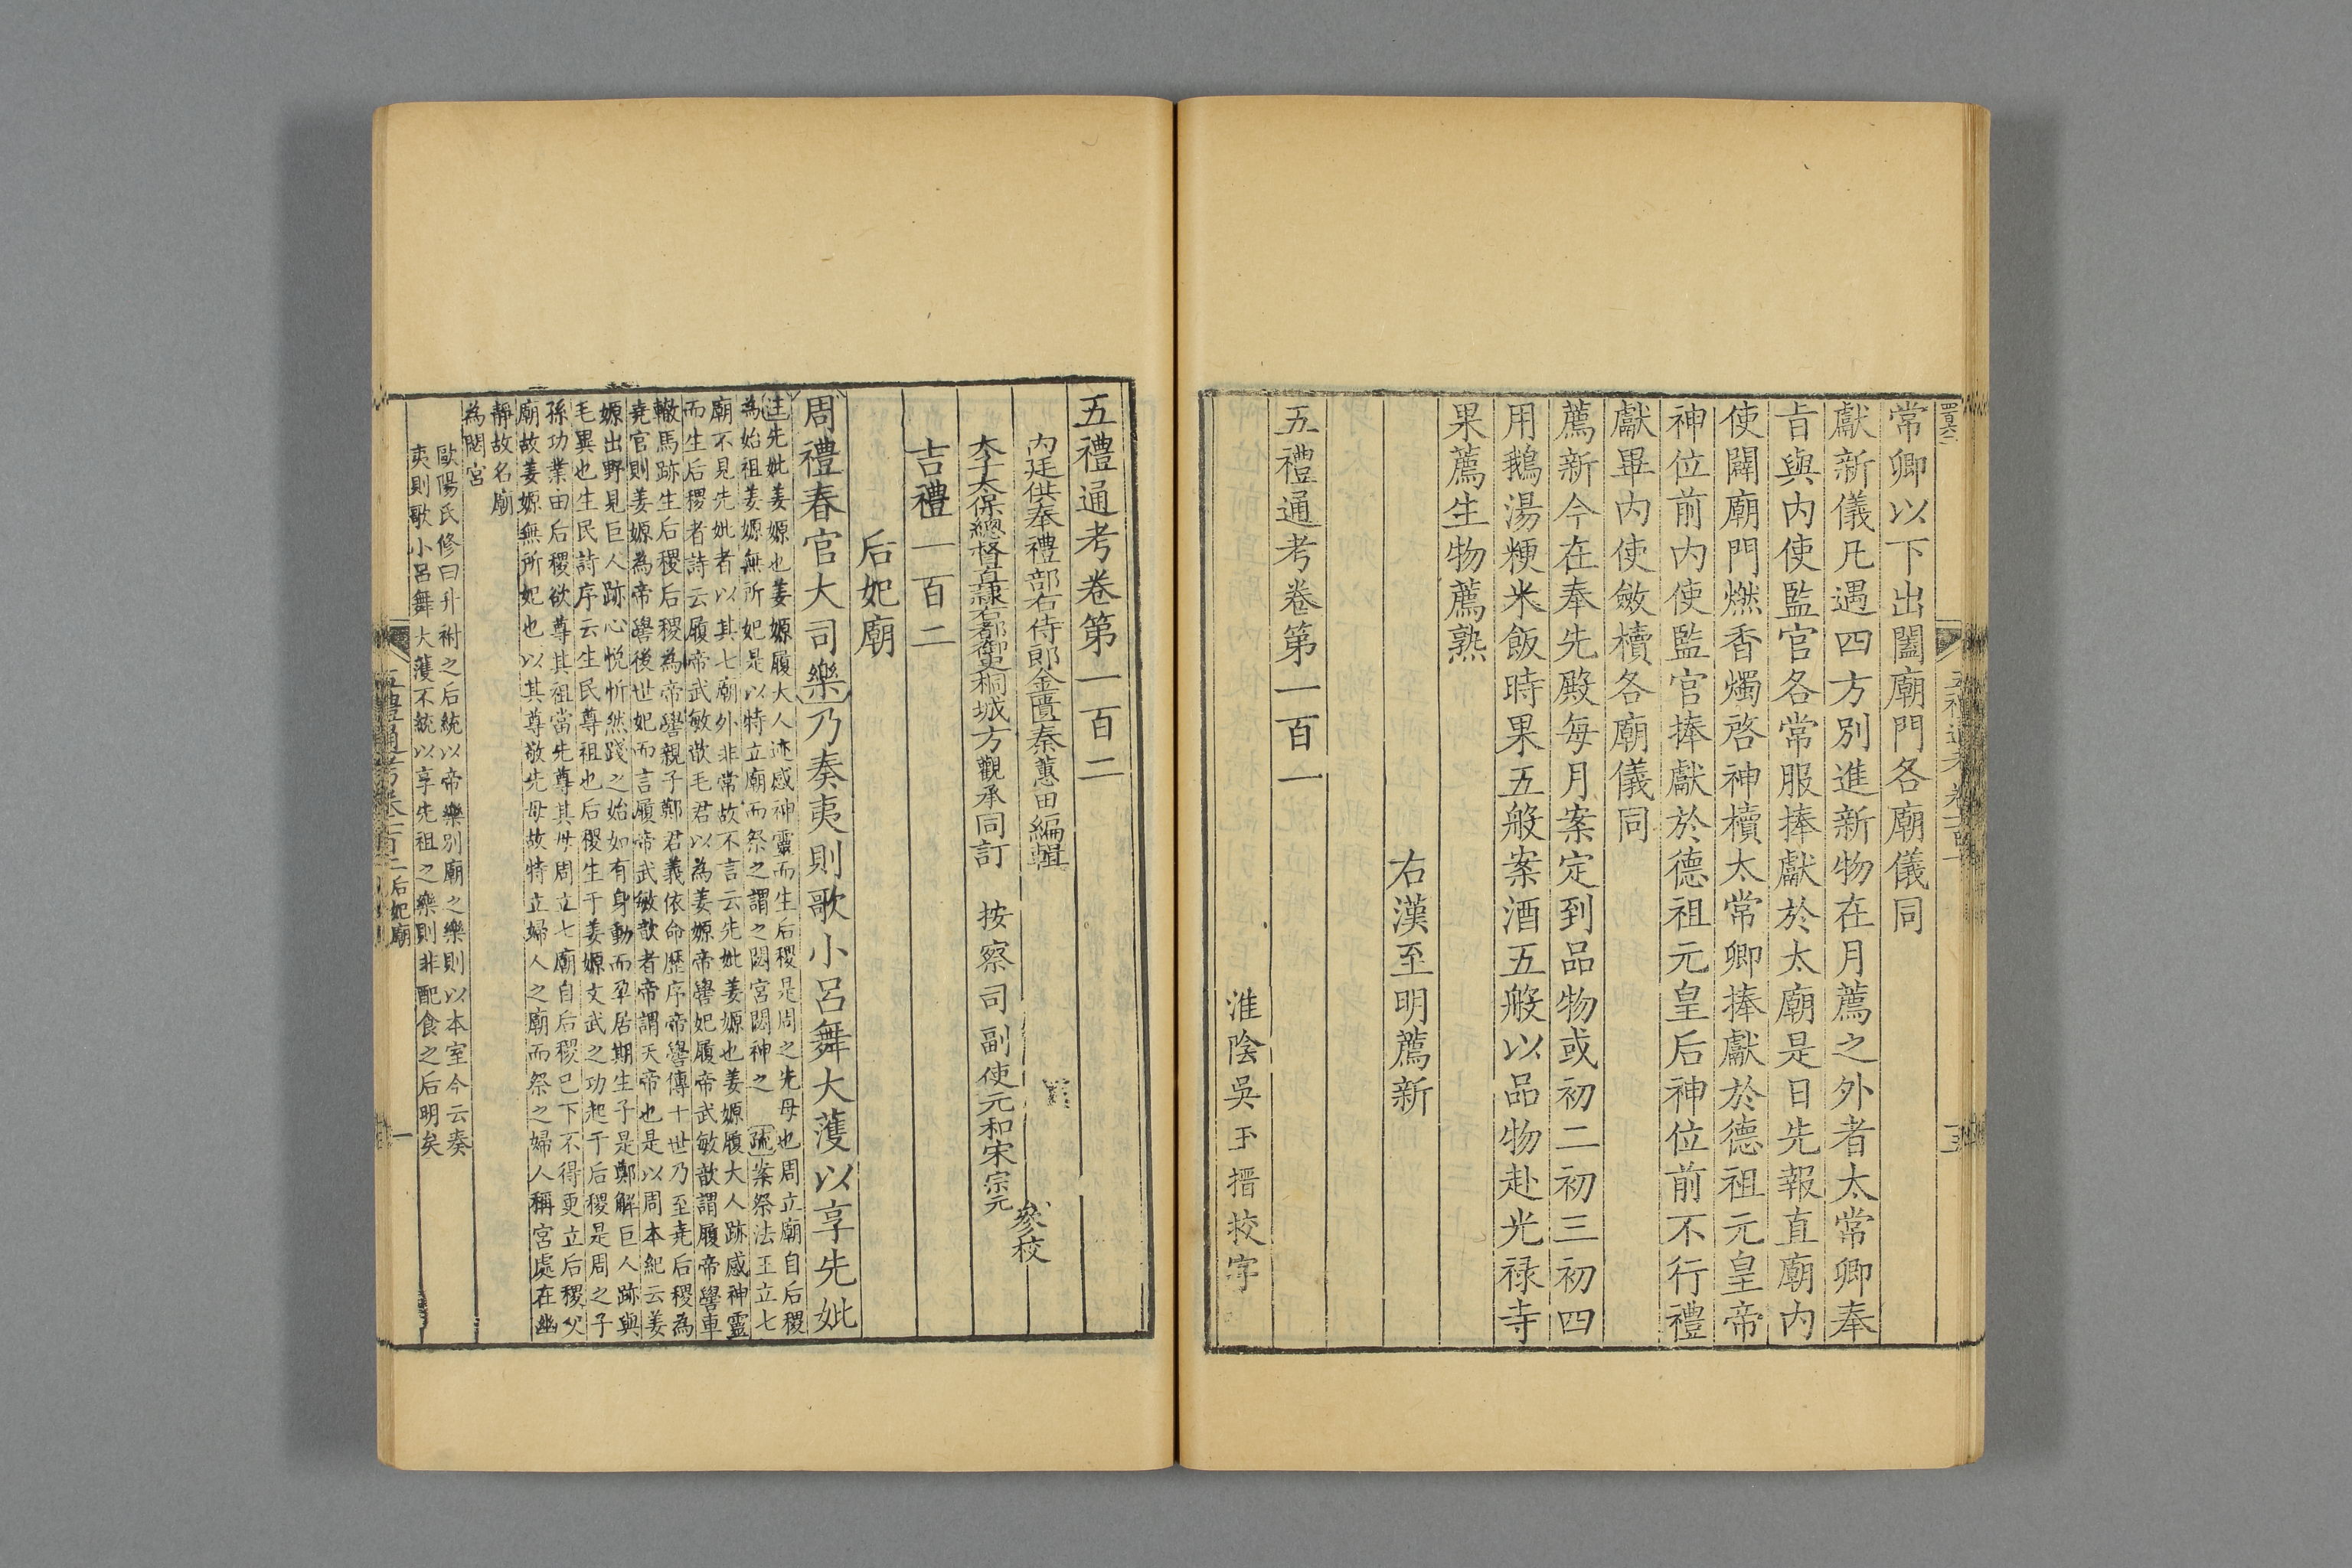 常卿以下出闔廟門各廟儀同
獻新儀凡遇四方別進新物在月薦之外者太常卿奉
旨與内使監官各常服捧獻於太廟是日先報直廟内
使闢廟門燃香燭啓神櫝太常卿捧獻於德祖元皇帝
神位前内使監官捧獻於德祖元皇后神位前不行禮
獻畢内使斂櫝各廟儀同
薦新今在奉先殿每月案定到品物或初二初三初四
用鵝湯粳米飯時果五般案酒五般以品物赴光禄寺
果薦生物薦熟
右漢至明薦新
五禮通考卷第一百一
淮陰吳玉搢挍字
五禮通考卷第一百二
内廷供奉禮部右侍郎金匱秦蕙田編輯
太子太保總督直隸右都御史桐城方觀承同訂
按察司副使元和宋宗元
參校
吉禮一百二
后妃廟
周禮春官大司樂乃奏夷則歌小呂舞大濩以享先妣
注先妣姜嫄也姜嫄履大人迹感神靈而生后稷是周之先母也周立廟自后稷
為始祖姜嫄無所妃是以特立廟而祭之謂之閟宮閟神之 疏案祭法王立七
廟不見先妣者以其七廟外非常故不言云先妣姜嫄也姜嫄履大人跡感神靈
而生后稷者詩云履帝武敏歆毛君以為姜嫄帝嚳妃履帝武敏歆謂履帝嚳車
轍馬跡生后稷后稷為帝嚳親子鄭君義依命歷序帝嚳傳十世乃至堯后稷為
堯官則姜嫄為帝嚳後世妃而言履帝武敏歆者帝謂天帝也是以周本紀云姜
嫄出野見巨人跡心悅忻然踐之始如有身動而孕居期生子是鄭解巨人跡與
毛異也生民詩序云生民尊祖也后稷生于姜嫄文武之功起于后稷是周之子
孫功業由后稷欲尊其祖當先尊其母周立七廟自后稷已下不得更立后稷父
廟故姜嫄無所妃也以其尊敬先母故特立婦人之廟而祭之婦人稱宮處在幽
靜故名廟
為閟宮
歐陽氏修曰升祔之后統以帝樂別廟之樂則以本室今云奏
夷則歌小呂舞大濩不統以享先祖之樂則非配食之后明矣
五禮通考卷一百二 后妃廟
一